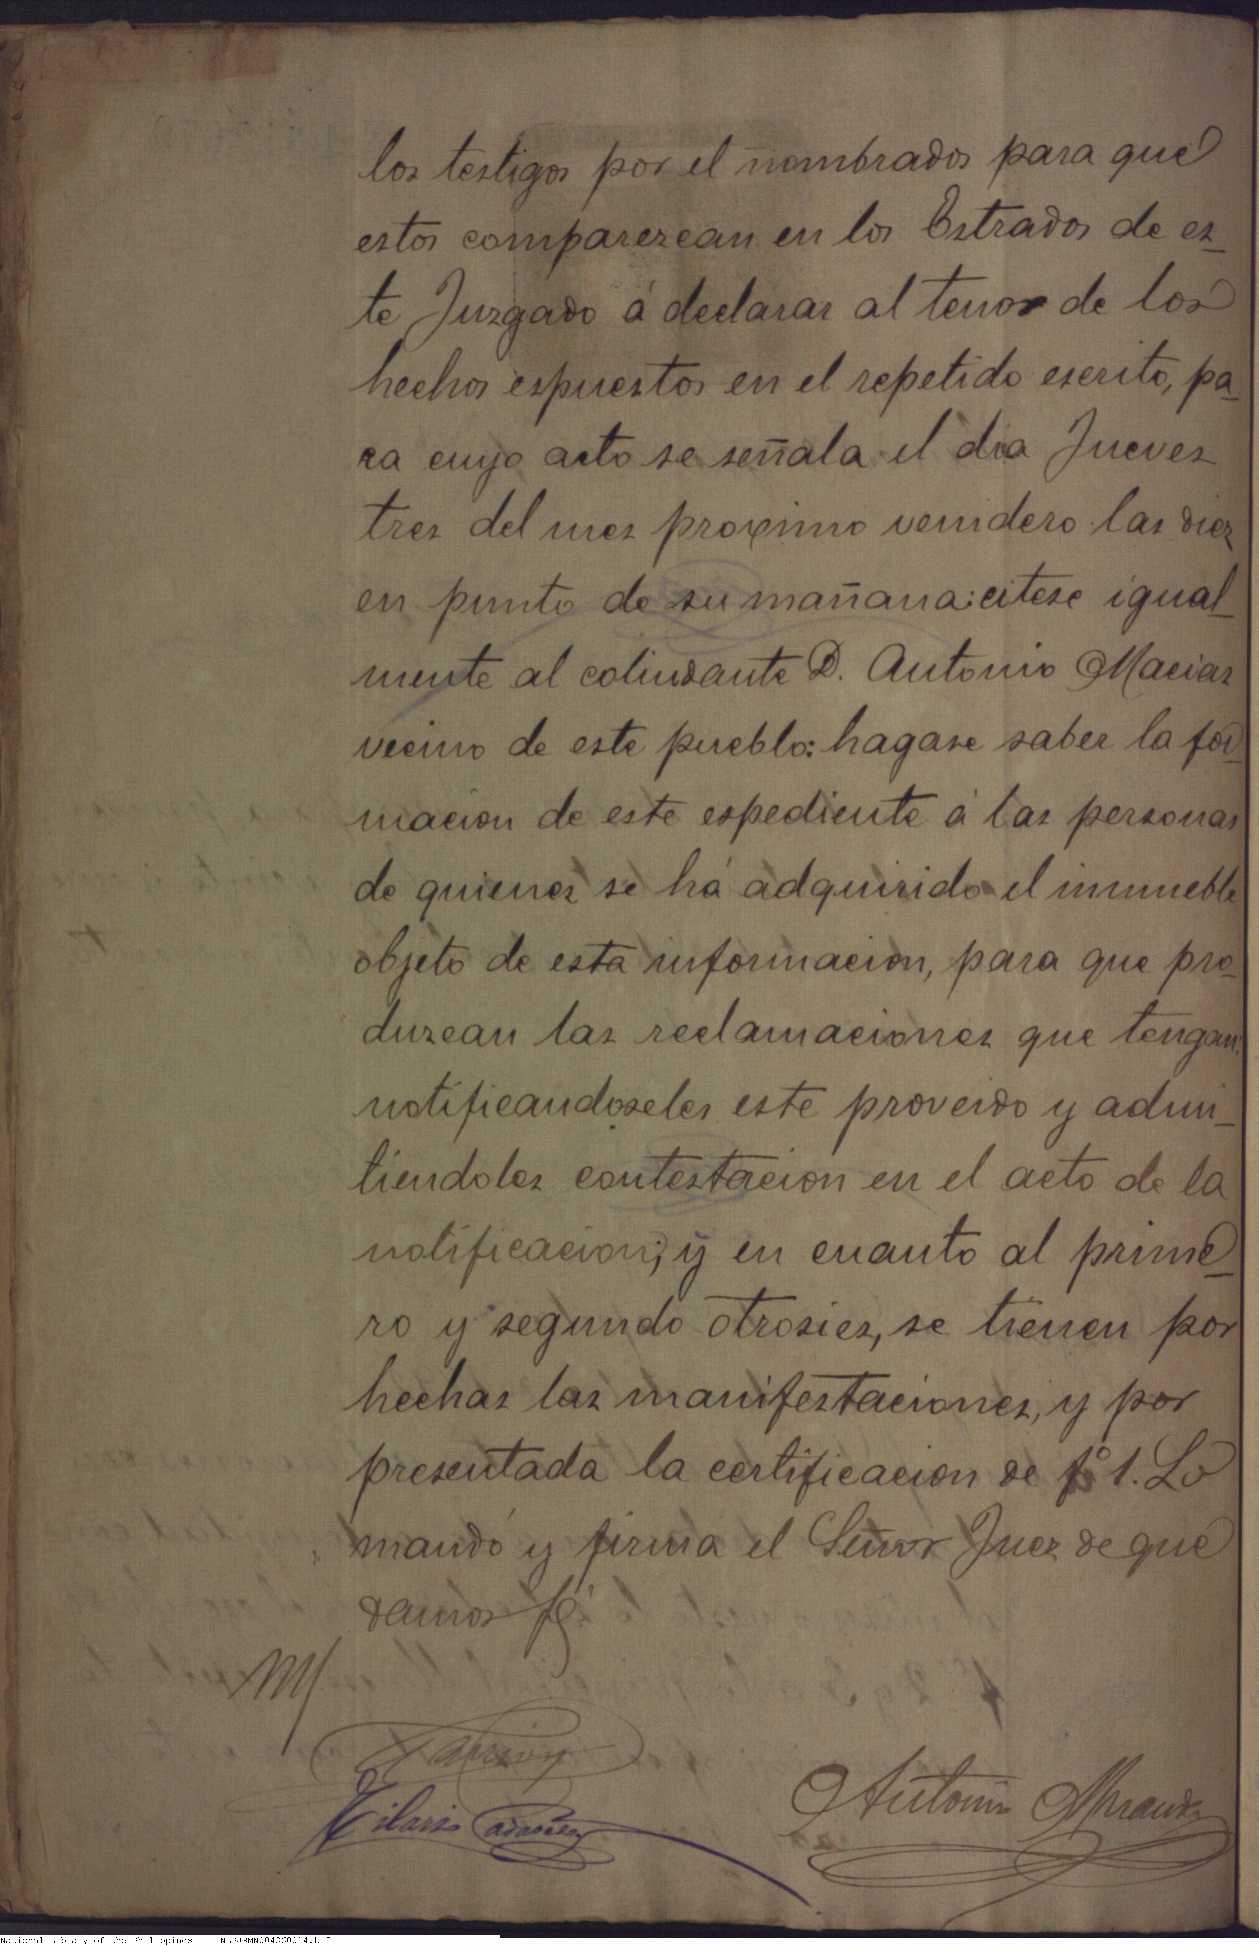 los testigos por el nombrados para que
estos comparezcan en los Estrados de es-
te Juzgado á declarar al tenor de los
hechos espuestos en el repetido escrito, pa-
ra cuyo acto se señala el dia Jueves
tres del mes proximo venidero las diez
en punto de su mañana: citese igual-
mente al colindante D. Antonio Macias
vecino de este pueblo: hagase saber la for-
macion de este espediente á las personas
de quienes se há adquirido el inmueble
objeto de esta informacion, para que pro-
duzcan las reclamaciones que tengan
notificandoseles este proveido y admi-
tiendoles contestacion en el acto de la
notificacion; y en cuanto al prime-
ro y segundo otrosies, se tienen por
hechas las manifestaciones, y por
presentada la certificacion de fº 1. Lo
mandó y firma el Señor Juez de que
damos fé
Hilario
Antonio Miranda
National Library of the Philippines